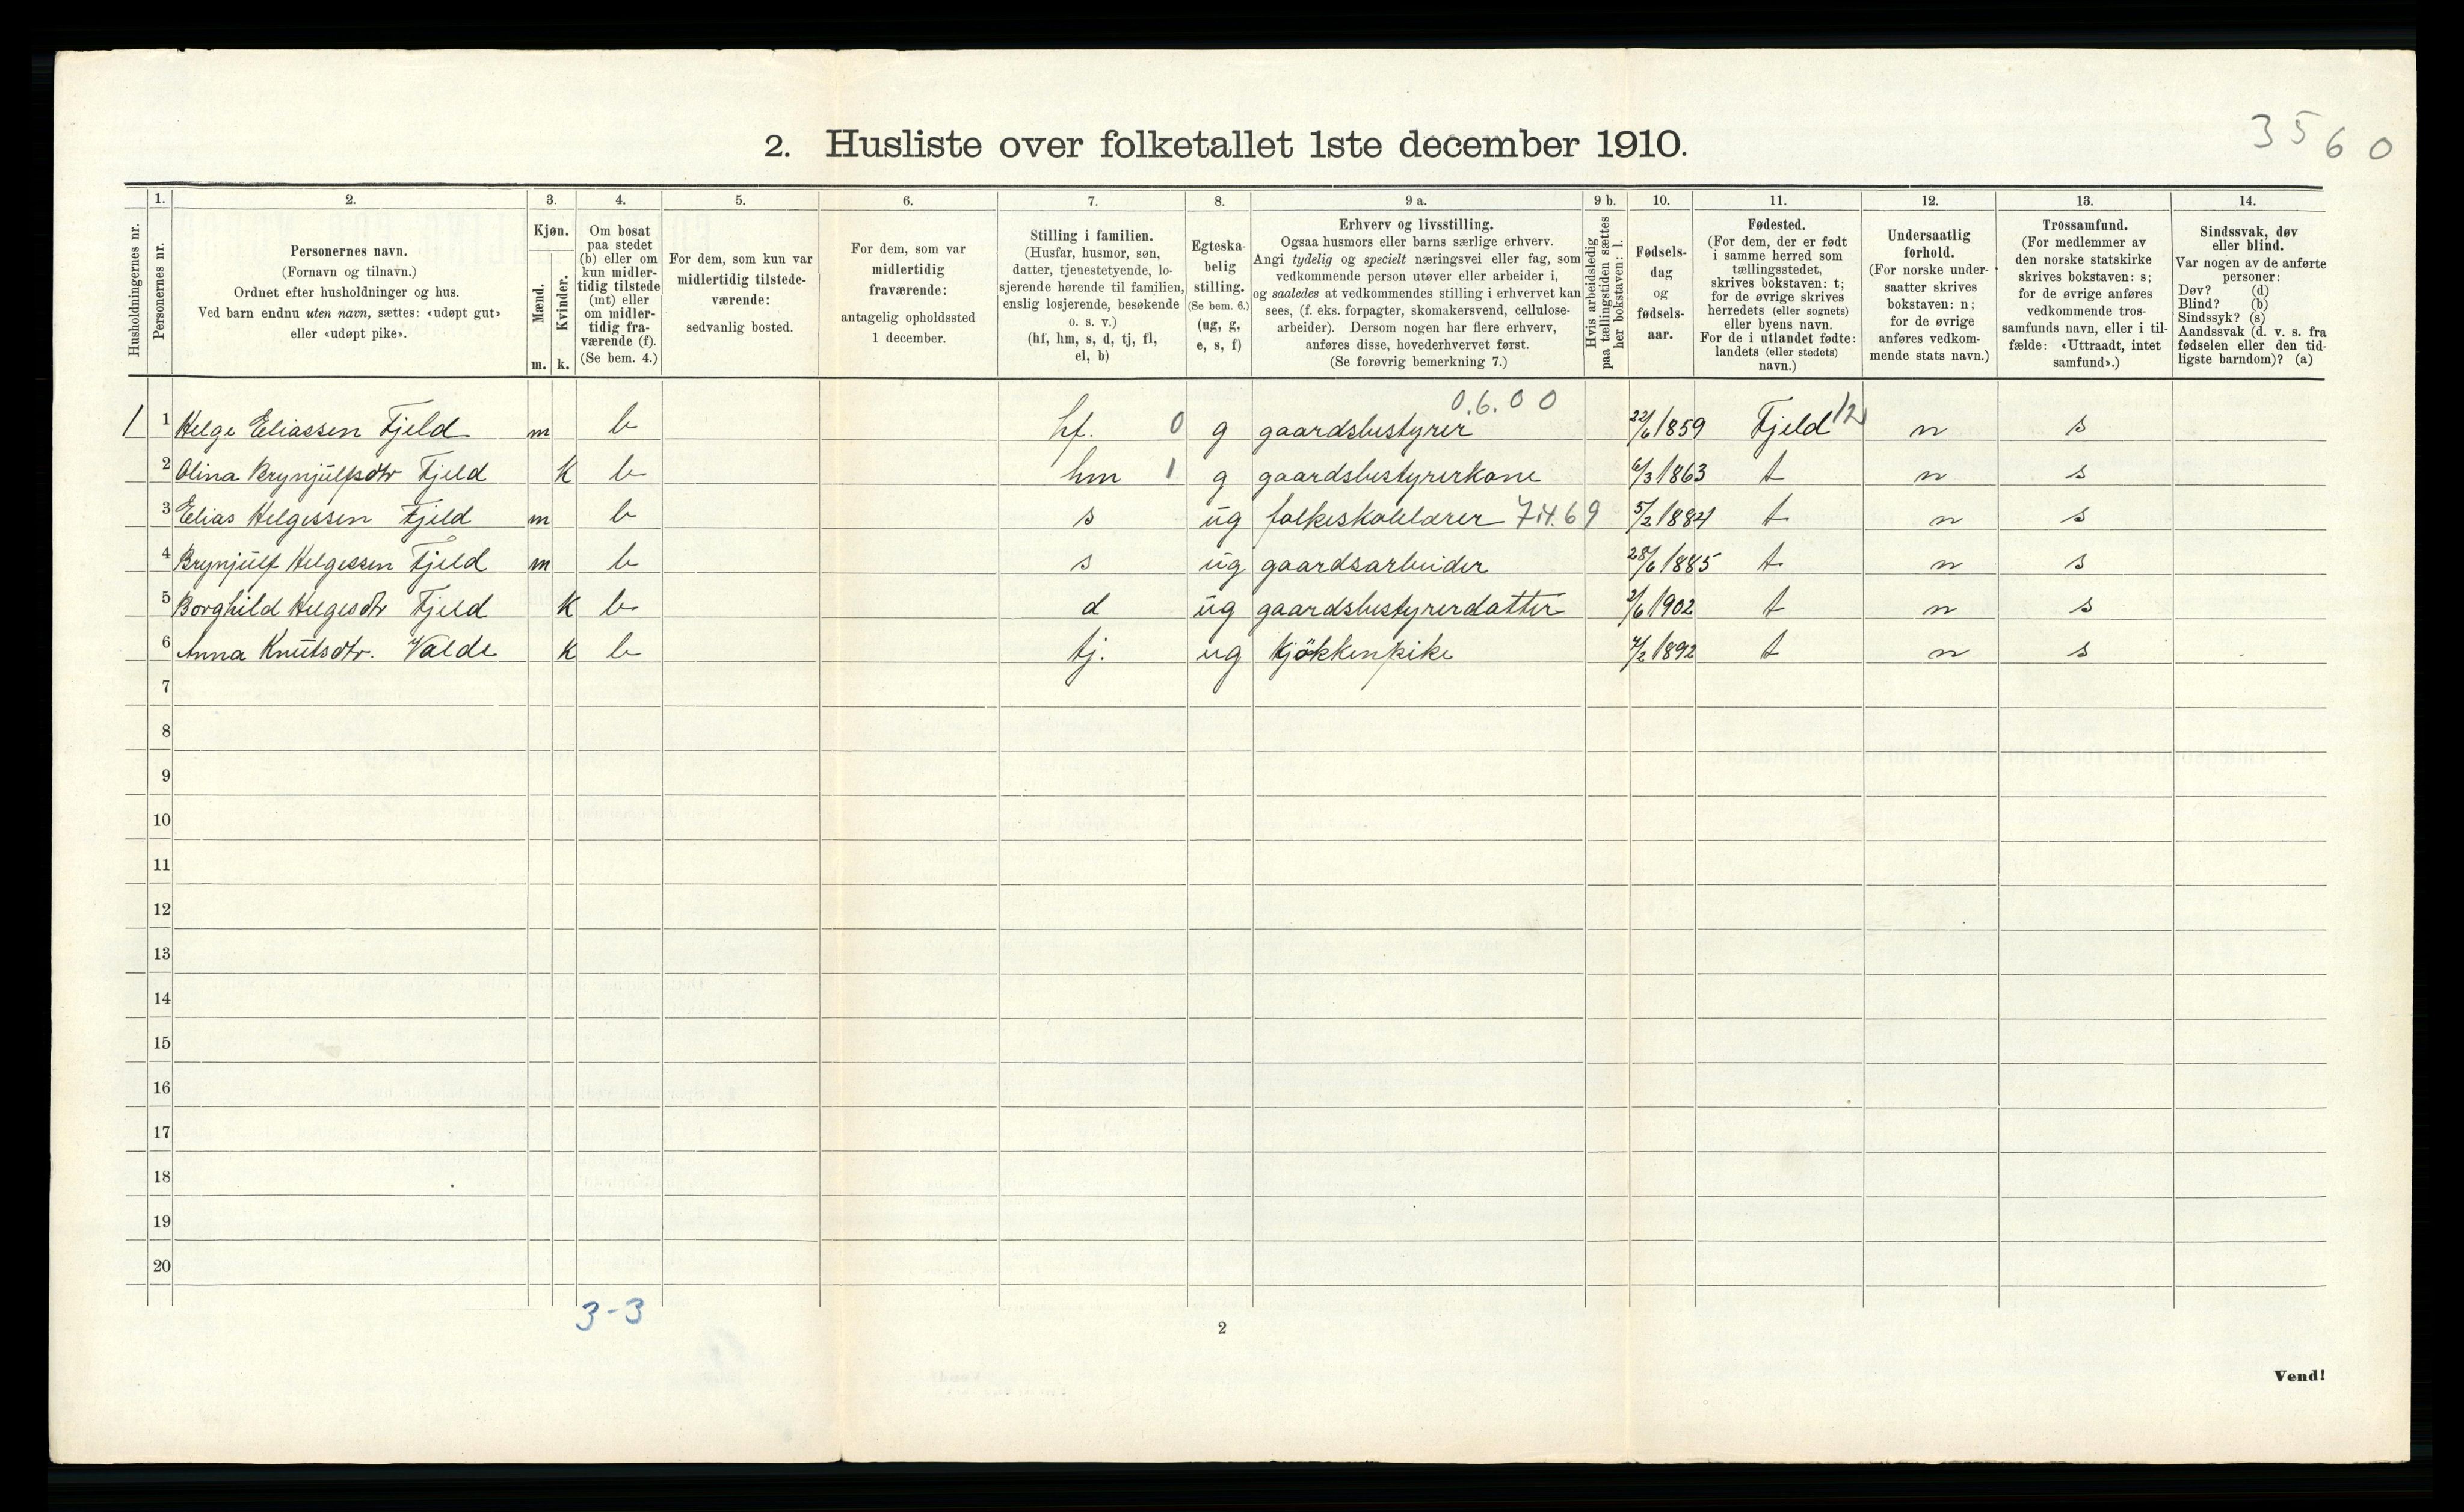 3560
2. Husliste over folketallet 1ste december 1910.
Husholdningernes nr.
1.
Personernes nr.
2.
Personernes navn.
(Fornavn og tilnavn.)
Ordnet efter husholdninger og hus.
Ved barn endnu uten navn, sættes: «udøpt gut»
eller «udøpt pike».
3.
Kjøn.
Mænd.
Kvinder.
m. k.
4.
Om bosat
paa stedet
(b) eller om
kun midler-
tidig tilstede
(mt) eller
om midler-
tidig fra-
værende (f).
(Se bem. 4.)
5.
For dem, som kun var
midlertidig tilstede-
værende:
sedvanlig bosted.
6.
For dem, som var
midlertidig
fraværende:
antagelig opholdssted
1 december.
7.
Stilling i familien.
(Husfar, husmor, søn,
datter, tjenestetyende, lo-
sjerende hørende til familien,
enslig losjerende, besøkende
o. s. v.)
(hf, hm, s, d, tj, fl,
el, b)
8.
Egteska-
belig
stilling.
(Se bem. 6.)
(ug, g,
e, s, f)
9 a.
Erhverv og livsstilling.
Ogsaa husmors eller barns særlige erhverv.
Angi tydelig og specielt næringsvei eller fag, som
vedkommende person utøver eller arbeider i,
og saaledes at vedkommendes stilling i erhvervet kan
sees, (f. eks. forpagter, skomakersvend, cellulose-
arbeider). Dersom nogen har flere erhverv,
anføres disse, hovederhvervet først.
(Se forøvrig bemerkning 7.)
9 b.
Hvis arbeidsledig
paa tællingstiden sættes
her bokstaven: l.
10.
Fødsels-
dag
og
fødsels-
aar.
11.
Fødested.
(For dem, der er født
i samme herred som
tællingsstedet,
skrives bokstaven: t;
for de øvrige skrives
herredets (eller sognets)
eller byens navn.
For de i utlandet fødte:
landets (eller stedets)
navn.)
12.
Undersaatlig
forhold.
(For norske under-
saatter skrives
bokstaven: n;
for de øvrige
anføres vedkom-
mende stats navn.)
13.
Trossamfund.
(For medlemmer av
den norske statskirke
skrives bokstaven: s;
for de øvrige anføres
vedkommende tros-
samfunds navn, eller i til-
fælde: «Uttraadt, intet
samfund».)
14.
Sindssvak, døv
eller blind.
Var nogen av de anførte
personer:
Døv? (d)
Blind? (b)
Sindssyk? (s)
Aandssvak (d. v. s. fra
fødselen eller den tid-
ligste barndom)? (a)
0.6.00
1 1 Helge Eliassen Fjeld m b hf. 0 g gaardsbestyrer 22/6 1859 Fjeld 12 n s
2 Olina Brynjülfsdtr Fjeld k b hm 1 g gaardsbestyrerkone 6/3 1863 t n s
3 Elias Helgessen Fjeld m b s ug folkeskolelærer 74.69 5/2 1884 t n s
4 Brynjülf Helgessen Fjeld m b s ug gaardsarbeider 28/6 1885 t n s
5 Borghild Helgesdtr Fjeld k b d ug gaardsbestyrerdatter 2/6 1902 t n s
6 Anna Knütsdtr. Valde k b tj. ug kjökkenpike 4/2 1892 t n s
7
8
9
10
11
12
13
14
15
16
17
18
19
20
3-3
2
Vend!